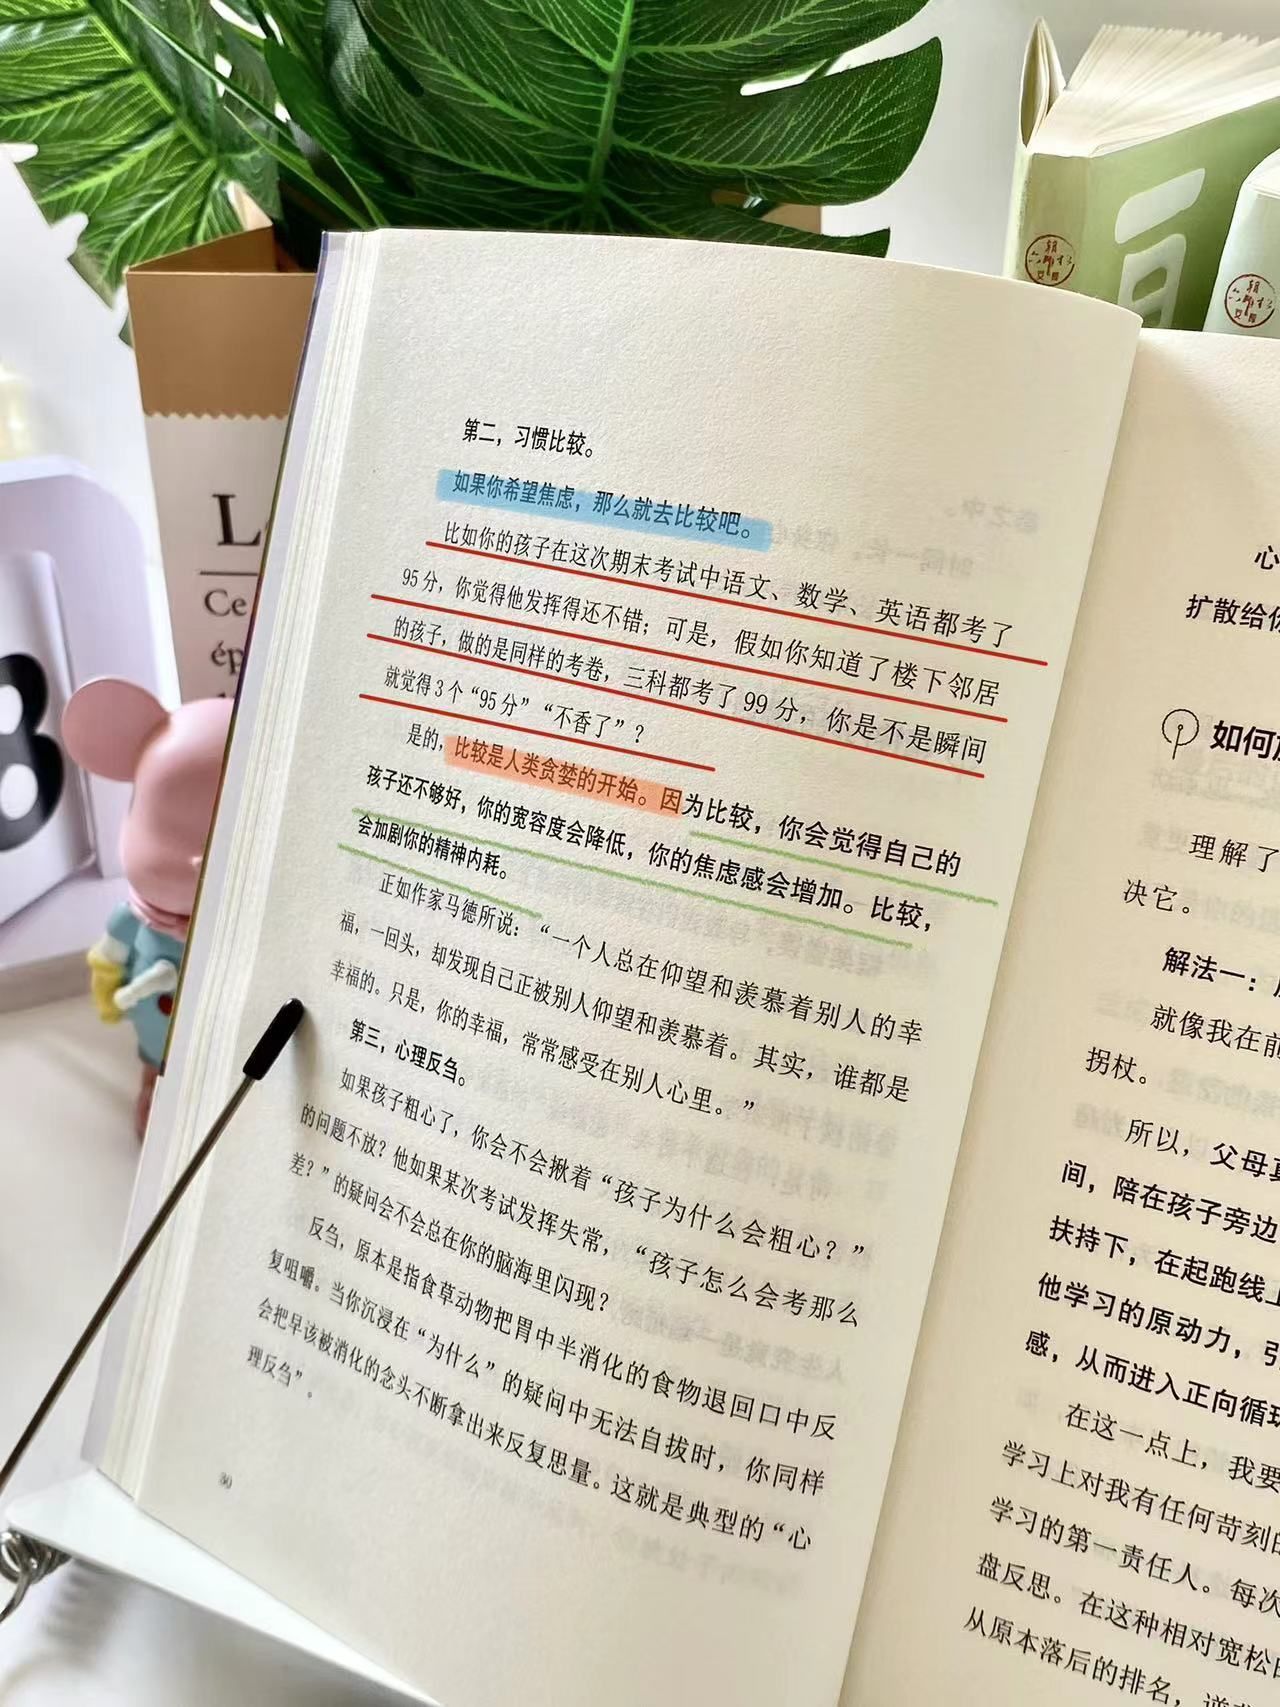 第二，习惯比较。
如果你希望焦虑，那么就去比较吧。
比如你的孩子在这次期末考试中语文、数学、英语都考了
95分，你觉得他发挥得还不错；可是，假如你知道了楼下邻居
的孩子，做的是同样的考卷，三科都考了99分，你是不是瞬间
就觉得3个“95分”“不香了”？
是的，比较是人类贪婪的开始。因为比较，你会觉得自己的
孩子还不够好，你的宽容度会降低，你的焦虑感会增加。比较，
会加剧你的精神内耗。
正如作家马德所说：“一个人总在仰望和羡慕着别人的幸
福，一回头，却发现自己正被别人仰望和羡慕着。其实，谁都是
幸福的。只是，你的幸福，常常感受在别人心里。”
第三，心理反刍。
如果孩子粗心了，你会不会揪着“孩子为什么会粗心？”
的问题不放？他如果某次考试发挥失常，“孩子怎么会考那么
差？”的疑问会不会总在你的脑海里闪现？
反刍，原本是指食草动物把胃中半消化的食物退回口中反
复咀嚼。当你沉浸在“为什么”的疑问中无法自拔时，你同样
会把早该被消化的念头不断拿出来反复思量。这就是典型的“心
理反刍”。
心
扩散给你
如何
理解了
决它。
解法一：
就像我在前
拐杖。
所以，父母真
间，陪在孩子旁边
扶持下，在起跑线上
他学习的原动力，引
感，从而进入正向循环
在这一点上，我要
学习上对我有任何苛刻的
学习的第一责任人。每次
盘反思。在这种相对宽松
从原本落后的排名，
Ce
ép